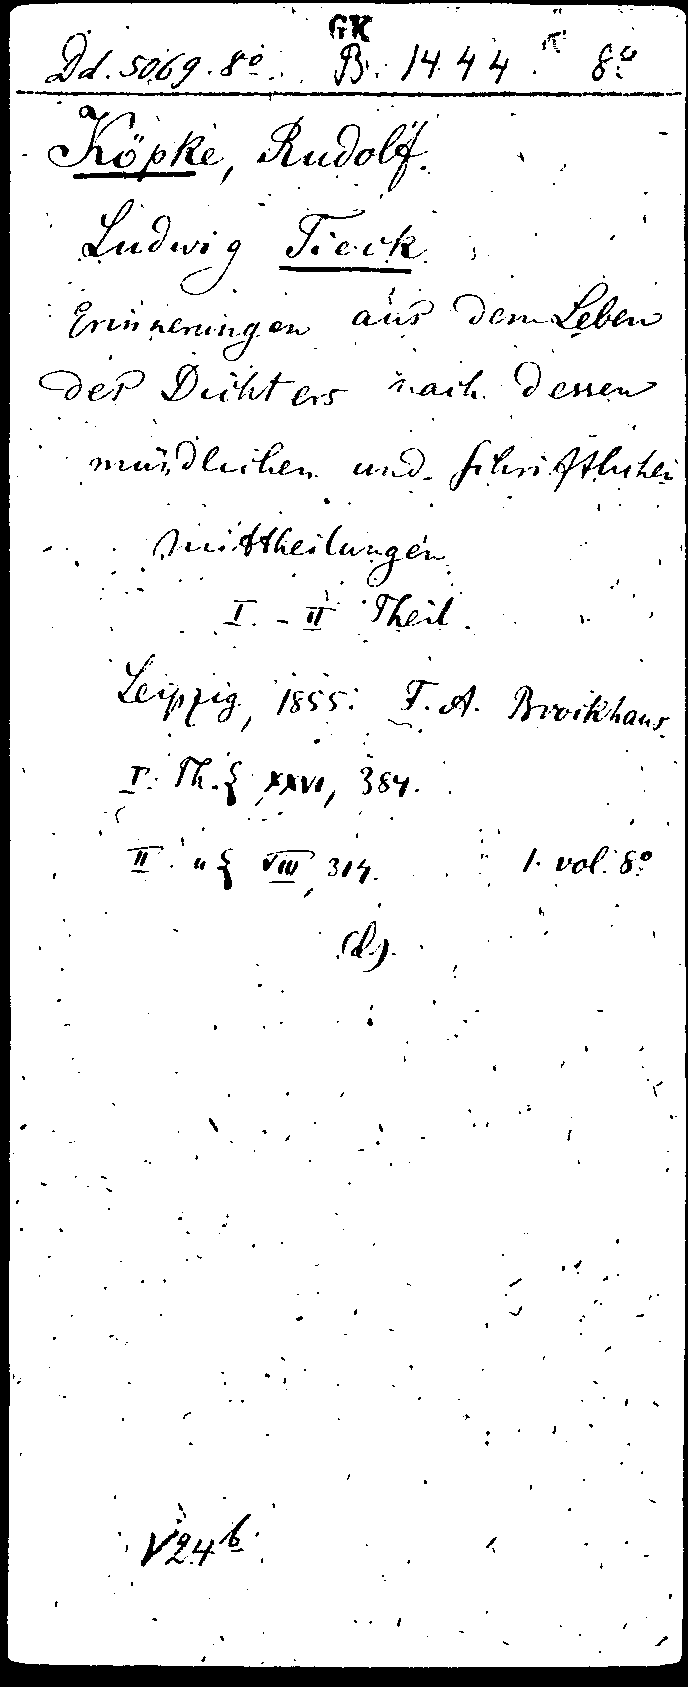 GK
Dd. 5069. 8º. B. 1444. 8º
Köpke, Rudolf.
Ludwig Tieck
Erinnerungen aus dem Leben
des Dichters nach dessen
mündlichen und schriftlichen
Mittheilungen
I. - II Theil.
Leipzig, 1855. F. A. Brockhaus.
I. Th. { XXVI, 384.
II. " { VIII, 314. 1. vol. 8º
V24b